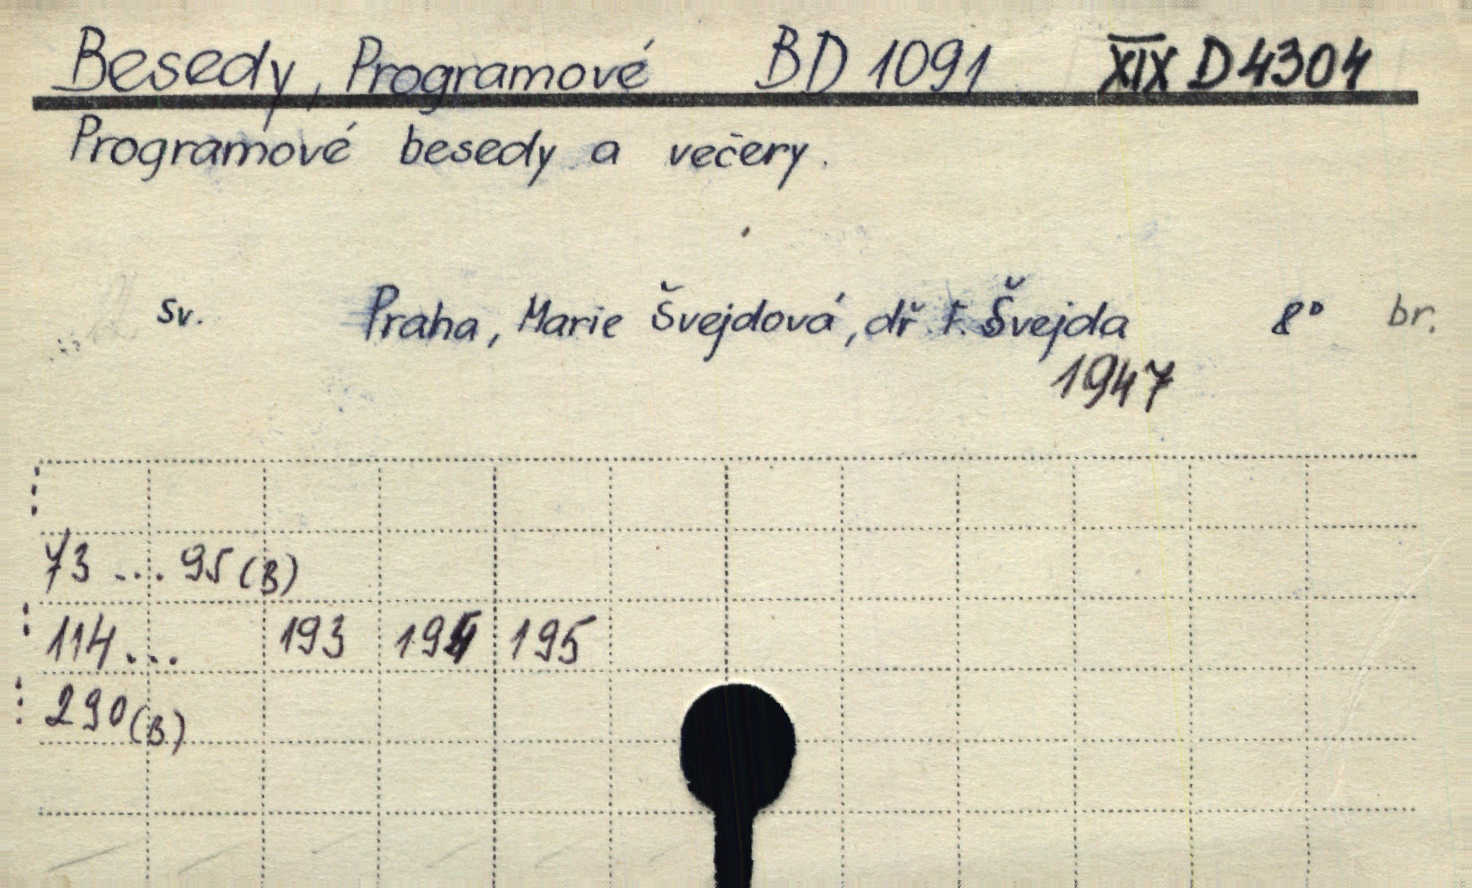 Besedy, Programové BD 1091 XIX D 4304
Programové besedy a večery.
sv. Praha, Marie Švejdová, dř. F. Švejda 8° br.
1947
73 ... 95 (B)
114 ... 193 194 195
290 (B)